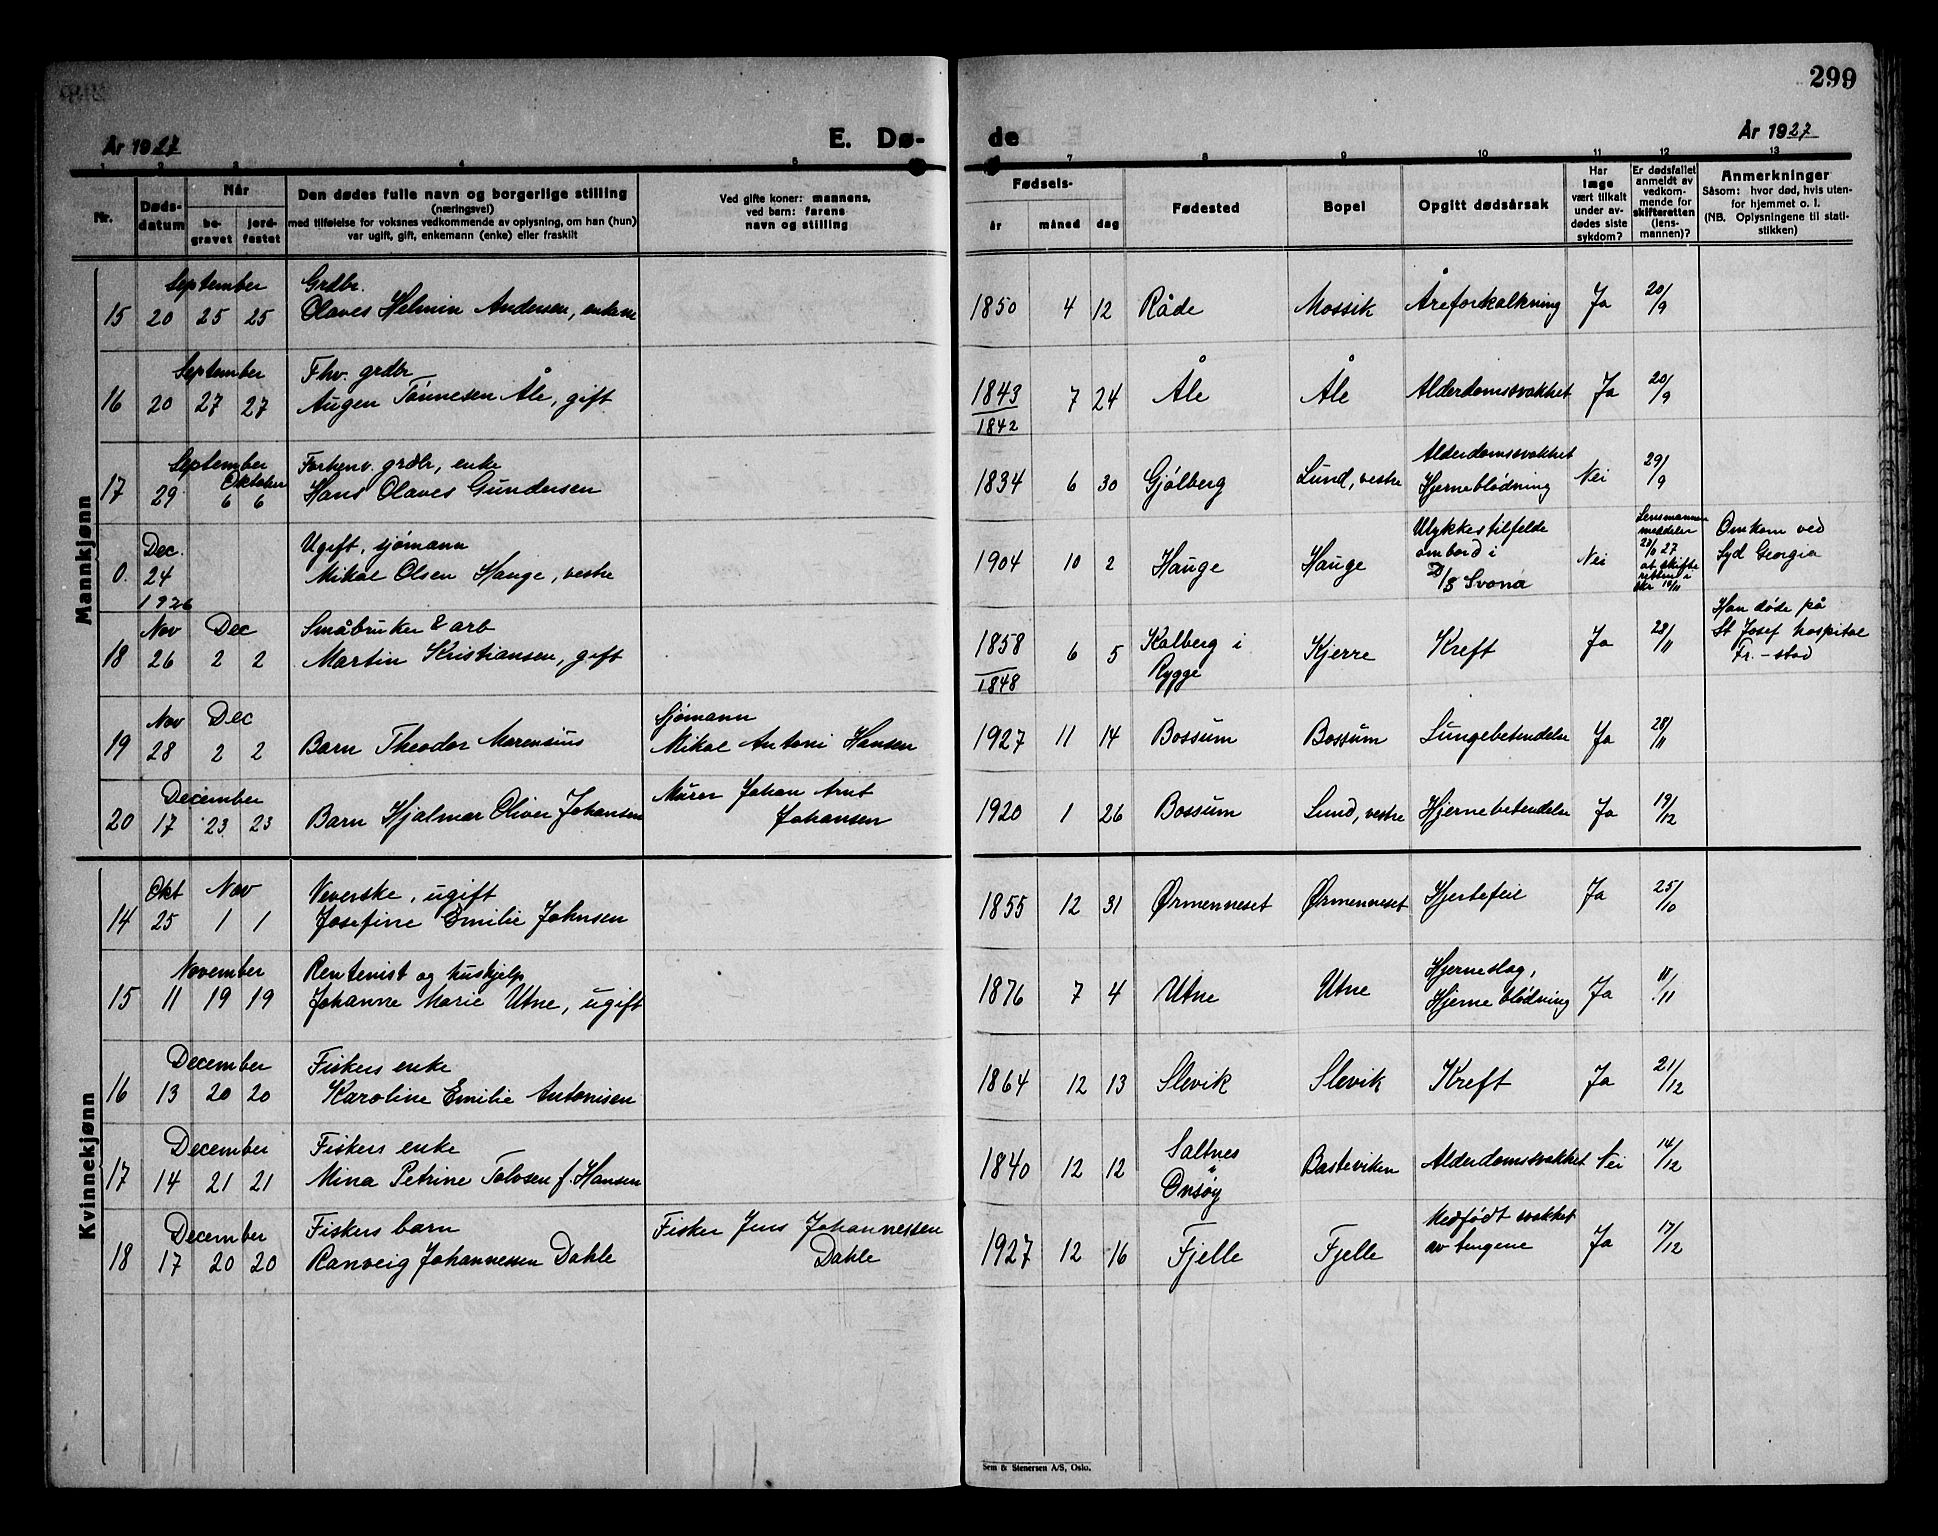 299
År 1927
E. Dø-
de
År 1927
1 2 3 4 5 7 8 9 10 11 12 13
Nr.
Døds-
datum
Når
be-
gravet
jord-
festet
Den dødes fulle navn og borgerlige stilling
(næringsvei)
med tilføielse for voksnes vedkommende av oplysning, om han (hun)
var ugift, gift, enkemann (enke) eller fraskilt
Ved gifte koner: mannens,
ved barn: farens
navn og stilling
Fødsels-
år måned dag
Fødested
Bopel
Opgitt dødsårsak
Har
læge
vært tilkalt
under av-
dødes siste
sykdom?
Er dødsfallet
anmeldt av
vedkom-
mende for
skifteretten
(lens-
mannen)?
Anmerkninger
Såsom: hvor død, hvis uten-
for hjemmet o. l.
(NB. Oplysningene til stati-
stikken)
Mannkjønn
September Grdbr.
15 20 25 25 Olaves Helmin Andersen, enkem 1850 4 12 Råde Mossik Åreforkalkning Ja 20/9
September Fhv. grdbr
16 20 27 27 Augen Tønnesen Åle, gift 1843 7 24 Åle Åle Alderdomssvakhet Ja 20/9
1842
September Forhenv. grdbr, enke Alderdomssvakhet
Oktober
17 29 6 6 Hans Olaves Gundersen 1834 6 30 Gjølberg Lund, vestre Hjerneblødning Nei 29/9
Dec. Ugift, sjømann Ulykkestilfelde Lensmannen Omkom ved
meddeler
0. 24 Mikal Olsen Hauge, vestre 1904 10 2 Hauge Hauge ombord i Nei 27 Syd Georgia
1926 D/S Svona at skifte
retten i
skr
Nov Dec Småbruker & arb Han døde på
18 26 2 2 Martin Kristiansen, gift 1858 6 5 Kalberg i Kjerre Kreft Ja 28/11 St Josef hospital
1848 Rygge Fr.-stad
Nov Dec Sjømann
19 28 2 2 Barn Theodor Marensius Mikal Antoni Hansen 1927 11 14 Bossum Bossum Lungebetendelse Ja 28/11
December Murer Johan Arnt
20 17 23 23 Barn Hjalmar Oliver Johansen Johansen 1920 1 26 Bossum Lund, vestre Hjernebetendelse Ja 19/12
Kvinnekjønn
Okt Nov Veverske, ugift
14 25 1 1 Josefine Emilie Johnsen 1855 12 31 Ørmenneset Ørmenneset Hjertefeil Ja 25/10
November Rentenist og hushjelp Hjerneslag,
15 11 19 19 Johanne Marie Utne, ugift 1876 7 4 Utne Utne Hjerneblødning Ja 11/11
December Fiskers enke
16 13 20 20 Karoline Emilie Antonisen 1864 12 13 Slevik Slevik Kreft Ja 21/12
December Fiskers enke Saltnes
17 14 21 21 Mina Petrine Tolvsen f. Hansen 1840 12 12 Onsøy Basteviken Alderdomssvakhet Nei 14/12
December Fiskers barn Fisker Jens Johannessen Medfødt svakhet
18 17 20 20 Ranveig Johannessen Dahle Dahle 1927 12 16 Fjelle Fjelle av lungene Ja 17/12
Sem & Stenersen A/S, Oslo.